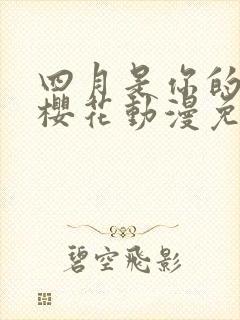 四月是你的
櫻花動漫免
碧空飛影